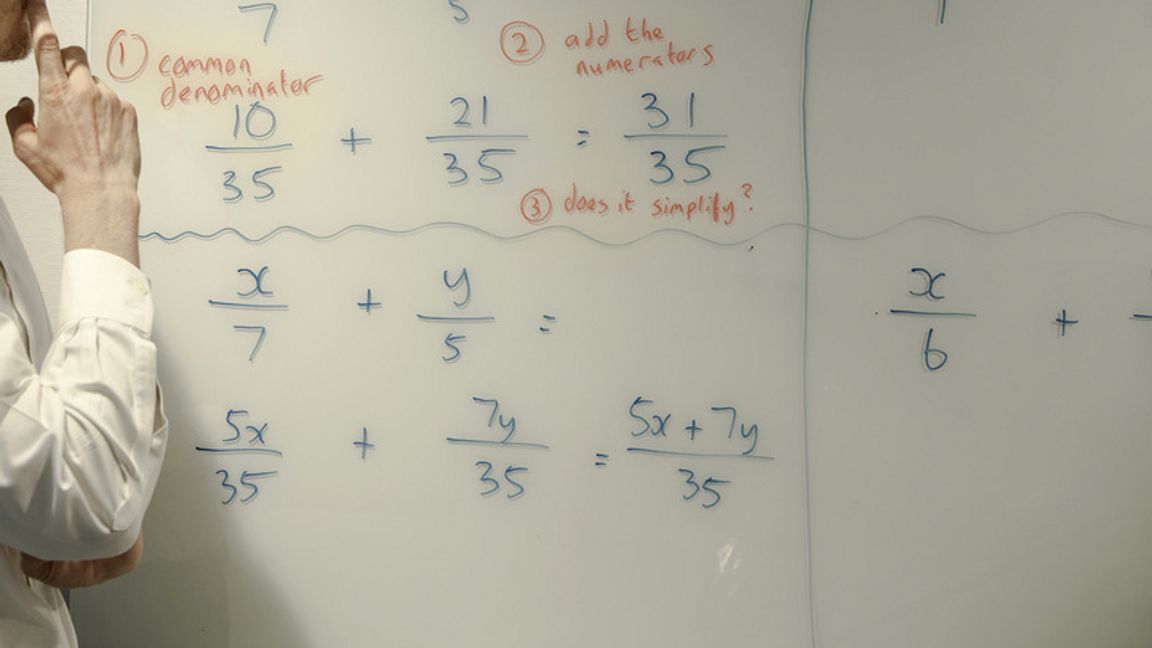 7 5
① common
denominator
② add the
numerators
10/35 + 21/35 = 31/35
③ does it simplify?
x/7 + y/5 =
5x/35 + 7y/35 = (5x + 7y)/35
x/6 +